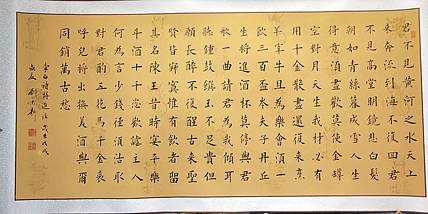 君不見黃河之水天上
來奔流到海不復回君
不見高堂明鏡悲白髮
朝如青絲暮成雪人生
得意須盡歡莫使金樽
空對月天生我材必有
用千金散盡還復來烹
羊宰牛且為樂會須一
飲三百盃岑夫子丹丘
生將進酒杯莫停與君
歌一曲請君為我傾耳
聽鐘鼓饌玉不足貴但
願長醉不復醒古來聖
賢皆寂寞惟有飲者留
其名陳王昔時宴平樂
斗酒十千恣歡謔主人
何為言少錢徑須沽取
對君酌五花馬千金裘
呼兒將出換美酒與爾
同銷萬古愁
李白詩將進酒 戊戌